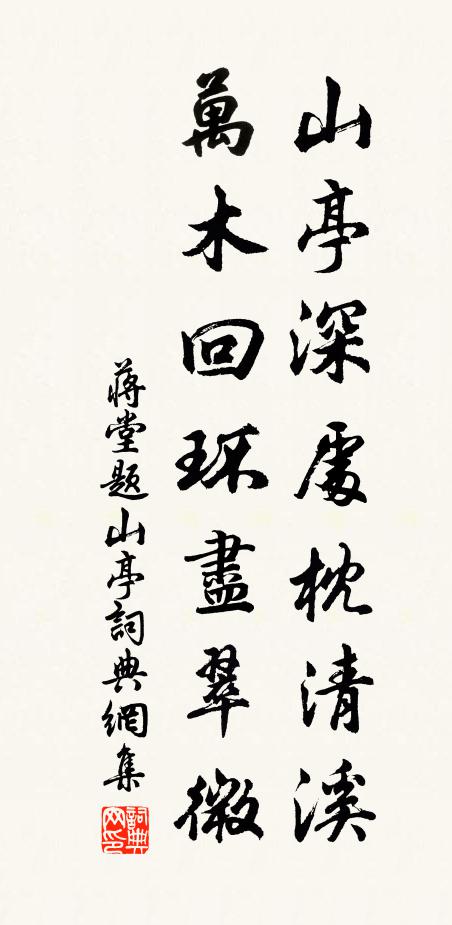 山亭深處枕清溪
萬木回環盡翠微
蔣堂題山亭詞典網集
詞典网印